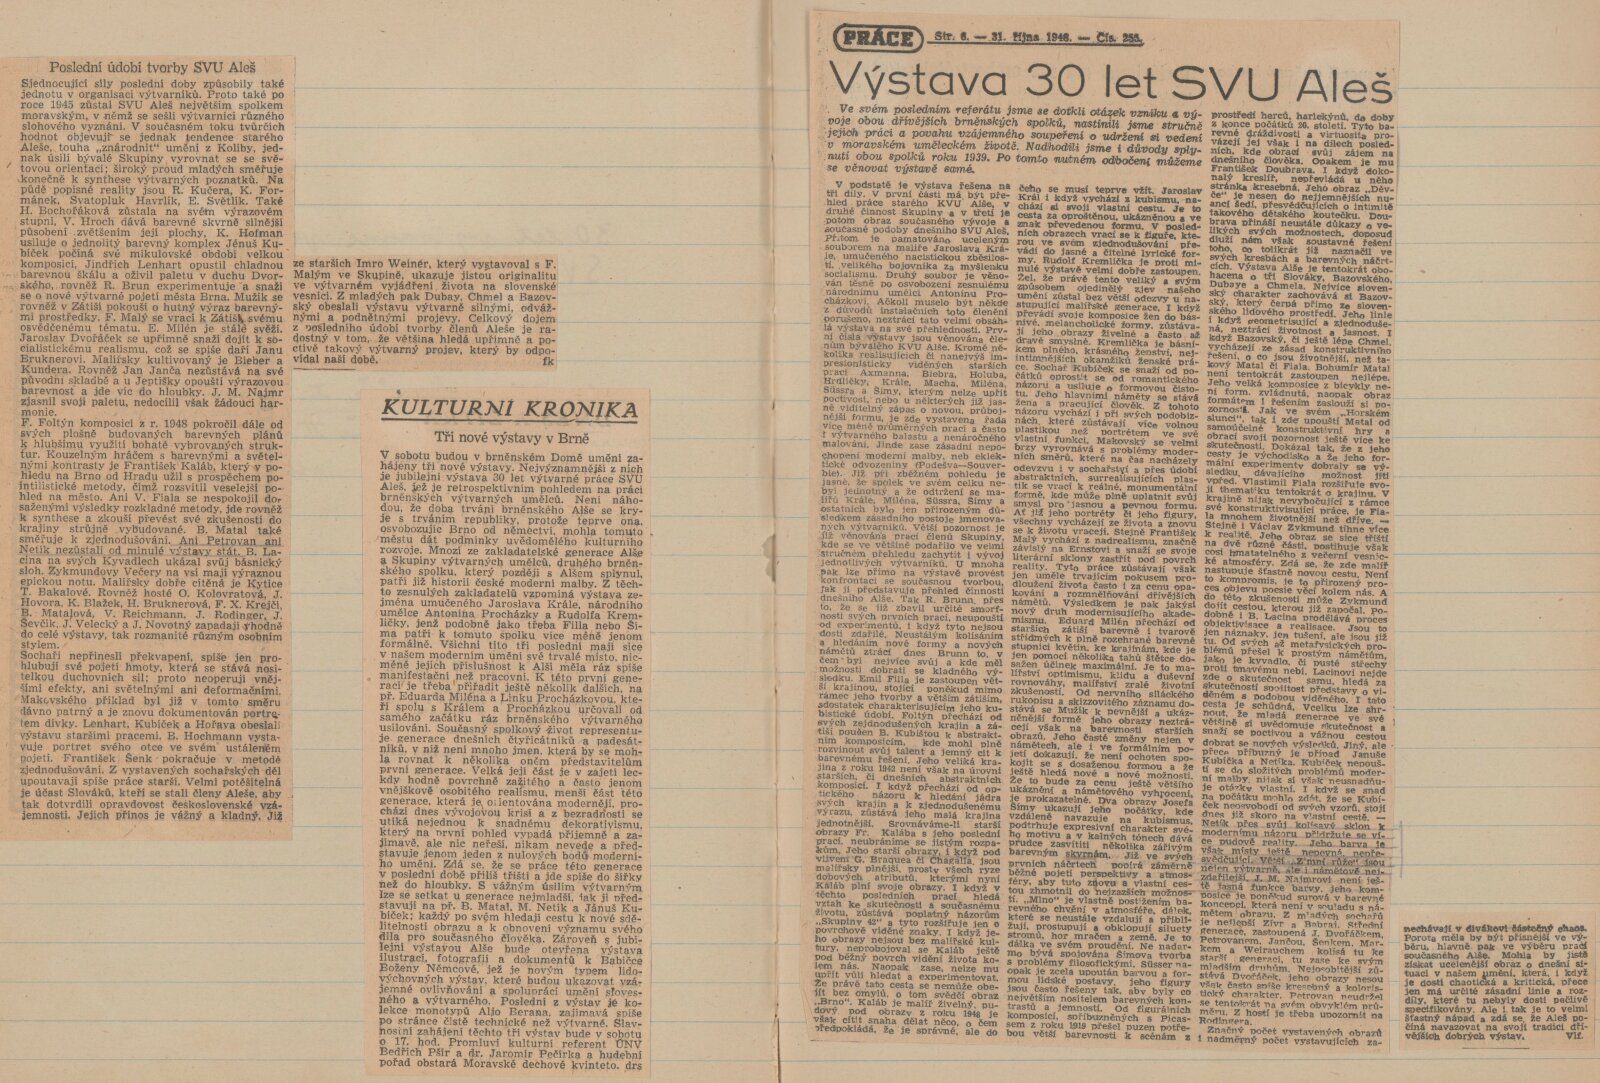 Poslední údobí tvorby SVU Aleš
Sjednocující síly poslední doby způsobily také
jednotu v organisaci výtvarníků. Proto také po
roce 1945 zůstal SVU Aleš největším spolkem
moravským, v němž se sešli výtvarníci různého
slohového vyznání. V současném toku tvůrčích
hodnot objevují se jednak tendence starého
Aleše, touha „znárodnit" umění z Koliby, jed-
nak úsilí bývalé Skupiny vyrovnat se se svě-
tovou orientací; široký proud mladých směřuje
konečně k synthese výtvarných poznatků. Na
půdě popisné reality jsou R. Kučera, K. For-
mánek, Svatopluk Havrlík, E. Světlík. Také
H. Bochořáková zůstala na svém výrazovém
stupni, V. Hroch dává barevné skvrně silnější
působení zvětšením její plochy, K. Hofman
usiluje o jednolitý barevný komplex Jénuš Ku-
bíček počíná své mikulovské období velkou
komposicí, Jindřich Lenhart opustil chladnou
barevnou škálu a oživil paletu v duchu Dvor-
ského, rovněž R. Brun experimentuje a snaží
se o nové výtvarné pojetí města Brna. Mužík se
rovněž v Zátiší pokouší o hutný výraz barevný-
mi prostředky. F. Malý se vrací k Zátiší, svému
osvědčenému tématu. E. Milén je stále svěží.
Jaroslav Dvořáček se upřímně snaží dojít k so-
cialistickému realismu, což se spíše daří Janu
Bruknerovi. Malířsky kultivovaný je Bieber a
Kundera. Rovněž Jan Janča nezůstává na své
původní skladbě a u Jeptišky opouští výrazovou
barevnost a jde víc do hloubky. J. M. Najmr
zjasnil svoji paletu, nedocílil však žádoucí har-
monie.
F. Foltýn komposicí z r. 1948 pokročil dále od
svých plošně budovaných barevných plánů
k hlubšímu využití bohatě vybrovaných struk-
tur. Kouzelným hráčem s barevnými a světel-
nými kontrasty je František Kaláb, který v po-
hledu na Brno od Hradu užil s prospěchem po-
intilistické metody, čímž rozsvítil veselejší po-
hled na město. Ani V. Fiala se nespokojil do-
saženými výsledky rozkladné metody, jde rovněž
k synthese a zkouší převést své zkušenosti do
krajiny strůjně vybudované. B. Matal také
směřuje k zjednodušování. Ani Petrovan ani
Netík nezůstali od minulé výstavy stát. B. La-
cina na svých Kyvadlech ukázal svůj básnický
sloh. Zykmundovy Večery na vsi mají výraznou
epickou notu. Malířsky dobře cítěná je Kytice
T. Bakalové. Rovněž hosté O. Kolovratová, J.
Hovora, K. Blažek, H. Bruknerová, F. X. Krejčí,
B. Matalová, V. Reichmann, J. Rodinger, J.
Ševčík, J. Velecký a J. Novotný zapadají vhodně
do celé výstavy, tak rozmanité různým osobním
stylem.
Sochaři nepřinesli překvapení, spíše jen pro-
hlubují své pojetí hmoty, která se stává nosi-
telkou duchovních sil; proto neoperují vněj-
šími efekty, ani světelnými ani deformačními.
Makovského příklad byl již v tomto směru
dávno patrný a je znovu dokumentován portré-
tem dívky. Lenhart, Kubíček a Hořava obeslali
výstavu staršími pracemi. B. Hochmann vysta-
vuje portret svého otce ve svém ustáleném
pojetí. František Šenk pokračuje v metodě
zjednodušování. Z vystavených sochařských děl
upoutávají spíše práce starší. Velmi potěšitelná
je účast Slováků, kteří se stali členy Aleše, aby
tak dotvrdili opravdovost československé vzá-
jemnosti. Jejich přínos je vážný a kladný. Již
ze starších Imro Weinér, který vystavoval s F.
Malým ve Skupině, ukazuje jistou originalitu
ve výtvarném vyjádření života na slovenské
vesnici. Z mladých pak Dubay, Chmel a Bazov-
ský obeslali výstavu výtvarně silnými, odváž-
nými a podnětnými projevy. Celkový dojem
z posledního údobí tvorby členů Aleše je ra-
dostný v tom, že většina hledá upřímně a po-
ctivě takový výtvarný projev, který by odpo-
vídal naší době. fk
KULTURNÍ KRONIKA
Tři nové výstavy v Brně
V sobotu budou v brněnském Domě umění za-
hájeny tři nové výstavy. Nejvýznamnější z nich
je jubilejní výstava 30 let výtvarné práce SVU
Aleš, jež je retrospektivním pohledem na práci
brněnských výtvarných umělců. Není náho-
dou, že doba trvání brněnského Alše se kry-
je s trváním republiky, protože teprve ona,
osvobozujíc Brno od němectví, mohla tomuto
městu dát podmínky uvědomělého kulturního
rozvoje. Mnozí ze zakladatelské generace Alše
a Skupiny výtvarných umělců, druhého brněn-
ského spolku, který později s Alšem splynul,
patří již historii české moderní malby. Z těch-
to zesnulých zakladatelů vzpomíná výstava ze-
jména umučeného Jaroslava Krále, národního
umělce Antonína Procházky a Rudolfa Krem-
ličky, jenž podobně jako třeba Filla nebo Ší-
ma patří k tomuto spolku více méně jenom
formálně. Všichni tito tři poslední mají sice
v našem moderním umění své trvalé místo, nic-
méně jejich příslušnost k Alši měla ráz spíše
manifestační než pracovní. K této první gene-
raci je třeba přiřadit ještě několik dalších, na
př. Eduarda Miléna a Linku Procházkovou, kte-
ří spolu s Králem a Procházkou určovali od
samého začátku ráz brněnského výtvarného
usilování. Současný spolkový život representu-
je generace dnešních čtyřicátníků a padesát-
níků, v níž není mnoho jmen, která by se moh-
la rovnat k několika oněm představitelům
první generace. Velká její část je v zajetí lec-
kdy hodně povrchně zažitého a často jenom
vnějškově osobitého realismu, menší část této
generace, která je orientována moderněji, pro-
chází dnes vývojovou krisí a z bezradnosti se
utíká nejednou k snadnému dekorativismu,
který na první pohled vypadá příjemně a za-
jímavě, ale nic neřeší, nikam nevede a před-
stavuje jenom jeden z nulových bodů moderní-
ho umění. Zdá se, že se práce této generace
v poslední době příliš tříští a jde spíše do šířky
než do hloubky. S vážným úsilím výtvarným
lze se setkat u generace nejmladší, tak ji před-
stavují na př. B. Matal, M. Netík a Jánuš Ku-
bíček; každý po svém hledají cestu k nové sdě-
litelnosti obrazu a k obnovení významu svého
díla pro současného člověka. Zároveň s jubi-
lejní výstavou Alše bude otevřena výstava
ilustrací, fotografií a dokumentů k Babičce
Boženy Němcové, jež je novým typem lido-
výchovných výstav, které budou ukazovat vzá-
jemné ovlivňování a spolupráci umění sloves-
ného a výtvarného. Poslední z výstav je ko-
lekce monotypů Aljo Berana, zajímavá spíše
po stránce čistě technické než výtvarné. Slav-
nostní zahájení těchto tří výstav bude v sobotu
o 17. hod. Promluví kulturní referent ÚNV
Bedřich Pšír a dr. Jaromír Pečírka a hudební
pořad obstará Moravské dechové kvinteto. drs
PRÁCE Str. 6. — 31. října 1946. — Čís. 255.
Výstava 30 let SVU Aleš
Ve svém posledním referátu jsme se dotkli otázek vzniku a vý-
voje obou dřívějších brněnských spolků, nastínili jsme stručně
jejich práci a povahu vzájemného soupeření o udržení si vedení
v moravském uměleckém životě. Nadhodili jsme i důvody sply-
nutí obou spolků roku 1939. Po tomto nutném odbočení můžeme
se věnovat výstavě samé.
V podstatě je výstava řešena na
tři díly. V první části má být pře-
hled práce starého KVU Aleš, v
druhé činnost Skupiny a v třetí je
potom obraz současného vývoje a
současné podoby dnešního SVU Aleš.
Přitom je pamatováno uceleným
souborem na malíře Jaroslava Krá-
le, umučeného nacistickou zběsilos-
tí, velikého bojovníka za myšlenku
socialismu. Druhý soubor je věno-
ván těsně po osvobození zesnulému
národnímu umělci Antonínu Pro-
cházkovi. Ačkoli muselo být někde
z důvodů instalačních toto členění
porušeno, neztrácí tato velmi obsáh-
lá výstava na své přehlednosti. Prv-
ní čísla výstavy jsou věnována čle-
nům bývalého KVU Aleš. Kromě ně-
kolika realisujících či nanejvýš im-
presionisticky viděných starších
prací Axmanna, Biebra, Holuba,
Hrdličky, Krále, Macha, Miléna,
Süssra a Šimy, kterým nelze upřít
poctivost, nebo u některých již jas-
ně viditelný zápas o novou, průboj-
nější formu, je zde vystavena řada
více méně průměrných prací a často
i výtvarného balastu a nenáročného
malování. Jinde zase zásadní nepo-
chopení moderní malby, neb eklek-
tické odvozeniny (Podešva—Souver-
bie). Již při zběžném pohledu je
jasné, že spolek ve svém celku ne-
byl jednotný a že odtržení se ma-
lířů Krále, Miléna, Süssra, Šimy a
ostatních bylo jen přirozeným dů-
sledkem zásadního postoje jmenova-
ných výtvarníků. Větší pozornost je
již věnována práci členů Skupiny,
kde se ve většině podařilo ve velmi
stručném přehledu zachytit i vývoj
jednotlivých výtvarníků. U mnoha
pak lze přímo na výstavě provést
konfrontaci se současnou tvorbou,
jak ji představuje přehled činnosti
dnešního Alše. Tak R. Brunn, přes
to, že se již zbavil určité smorf-
nosti svých prvních prací, neupouští
od experimentů, i když tyto nejsou
dosti zdařilé. Neustálým kolísáním
a hledáním nové formy a nových
námětů ztrácí dnes Brunn to, v
čem byl nejvíce svůj a kde měl
možnosti dobrati se kladného vý-
sledku. Emil Filla je zastoupen vět-
ší krajinou, stojící poněkud mimo
rámec jeho tvorby a větším zátiším,
dostatek charakterisujícím jeho ku-
bistické údobí. Foltýn přechází od
svých zjednodušených krajin a zá-
tiší poučen B. Kubištou k abstrakt-
ním komposicím, kde mohl plně
rozvinout svůj talent a jemný cit k
barevnému řešení. Jeho veliká kra-
jina z roku 1942 není však na úrovni
starších, či dnešních abstraktních
komposicí. I když přechází od op-
tického názoru k hledání jádra
svých krajin a k zjednodušenému
výrazu, zůstává jeho malá krajina
jednotnější. Srovnáváme-li starší
obrazy Fr. Kalába s jeho poslední
prací, neubráníme se jistým rozpa-
kům. Jeho starší obrazy, i když pod
vlivem G. Braquea či Chagalla, jsou
malířsky plnější, prosty všech ryze
dobových atributů, kterými nyní
Kaláb plní svoje obrazy. I když v
těchto posledních prací hledá
vztah ke skutečnosti a současnému
životu, zůstává poplatný názorům
„Skupiny 42" a tyto rozšiřuje jen o
povrchově viděné znaky. I když je-
ho obrazy nejsou bez malířské kul-
tury, neprobojoval se Kaláb ještě
pod běžný povrch vidění života ko-
lem nás. Naopak zase, nelze mu
upřít vůli hledat a experimentovat.
Že práve tato cesta se nemůže obe-
jít bez omylů, o tom svědčí obraz
„Brno". Kaláb je malíř živelný, pu-
dový pod obrazy z roku 1948 je
však cítit snaha dělat něco, o čem
předpokládá, že je správné, ale do
čeho se musí teprve vžít. Jaroslav
Král i když vychází z kubismu, na-
chází si svojí vlastní cestu. Je to
cesta za oproštěnou, ukázněnou a ve
znak převedenou formu. V posled-
ních obrazech vrací se k figuře, kte-
rou ve svém zjednodušování pře-
vádí do jasné a čitelné lyrické for-
my. Rudolf Kremlička je proti mi-
nulé výstavě velmi dobře zastoupen.
Žel, že právě tento veliký a svým
způsobem ojedinělý zjev našeho
umění zůstal bez větší odezvy u na-
stupující malířské generace. I když
převádí svoje komposice žen do bás-
nivé, melancholické formy, zůstáva-
jí jeho obrazy živelné a často až
dravě smyslné. Kremlička je básní-
kem plného, krásného ženství, nej-
intimnějších okamžiků ženské prá-
ce. Sochař Kubíček se snaží od po-
čátků oprostit se od romantického
názoru a usiluje o formovou čisto-
tu. Jeho hlavními náměty se stává
žena a pracující člověk. Z tohoto
názoru vychází i při svých podobiz-
nách, které zůstávají více volnou
plastikou než portrétem ve své
vlastní funkci. Makovský se velmi
brzy vyrovná s problémy moder-
ních směrů, které na čas nacházely
odezvu i v sochařství a přes údobí
abstraktních, surrealisujících plas-
tik se vrací k reálné, monumentální
formě, kde může plně uplatnit svůj
smysl pro jasnou a pevnou formu.
Ať již jeho portréty či jeho figury,
všechny vycházejí ze života a znovu
se k životu vracejí. Stejně František
Malý vychází z nadrealismu, značně
závislý na Ernstovi a snaží se svoje
literární sklony zastřít pod povrch
reality. Tyto práce zůstávají však
jen uměle trvajícím pokusem pro-
dloužení života často i za cenu opa-
kování a rozmnělňování dřívějších
námětů. Výsledkem je pak jakýsi
nový druh modernisujícího akade-
mismu. Eduard Milén přechází od
starších zátiší barevně i tvarově
střídmých k plně rozehrané barevné
stupnici květin, ke krajinám, kde je
jen pomocí několika tahů štětce do-
sažen účinek maximální. Je to ma-
lířství optimismu, klidu a duševní
rovnováhy, malířství zralé životní
zkušenosti. Od nervního siláckého
rukopisu a skizzovitého záznamu do-
stává se Mužík k pevnější a ukáz-
něnější formě jeho obrazy neztrá-
cejí však na barevnosti starších
obrazů. Jeho časté změny nejen v
námětech, ale i ve formálním po-
jetí dokazují, že není ochoten spo-
kojit se s dosaženou formou a že
ještě hledá nové a nové možnosti.
Že to bude za cenu ještě většího
ukáznění a námětového vyhrocení,
je prokazatelné. Dva obrazy Josefa
Šímy ukazují jeho počátky, kde
vzdáleně navazuje na kubismus,
podtrhuje expresivní charakter své-
ho motivu a v kalných tónech dává
prudce zasvítiti několika zářivým
barevným skvrnám. Již ve svých
prvních náčrtech popírá záměrně
běžné pojetí perspektivy a atmos-
féry, aby tuto znovu a vlastní ces-
tou zhmotnil do nejzazších možnos-
tí. „Mlno" je vlastně postižením ba-
revného chvění v atmosféře, dálek,
které se neustále vzdalují a přibli-
žují, prostupují a obklopují siluety
stromů, hor mračen a země. Je to
dálka ve svém proudění. Ne nadar-
mo bývá spojována Šímova tvorba
s problémy filosofickými. Süsser na-
opak je zcela upoután barvou a for-
mou lidské postavy. Jeho figury
jsou často řešeny tak, aby byly co
největším nositelem barevných kon-
trastů a jemností. Od figurálních
komposicí, sořibuzněných s Picas-
sem z roku 1919 přešel puzen potře-
bou větší barevnosti k scénám z
prostředí herců, harlekýnů, do baby
z konce počátků 20. století. Tyto ba-
revné dráždivosti a virtuosita pro-
vázejí jej však i na dílech posled-
ních, kde obrací svůj zájem na
dnešního člověka. Opakem je mu
František Doubrava. I když doko-
nalý kreslíř, nepřevládá u něho
stránka kresebná. Jeho obraz „Děv-
če" je nesen do nejjemnějších nu-
ancí šedí, přesvědčujících o intimitě
takového dětského koutečku. Dou-
brava přináší neustále důkazy o ve-
likých svých možnostech, doposud
dluží nám však soustavné řešení
toho, co tolikrát již naznačil ve
svých kresbách a barevných náčr-
tcích. Výstava Alše je tentokrát obo-
hacena o tři Slováky, Bazovského,
Dubaye a Chmela. Nejvíce sloven-
ský charakter zachovává si Bazov-
ský, který čerpá přímo ze sloven-
ského lidového prostředí. Jeho linie
i když geometrisující a zjednoduše-
ná, neztrácí životnost a jasnost. I
když Bazovský, či ještě lépe Chmel,
vycházejí ze zásad konstruktivního
řešení, o co jsou životnější, než ta-
kový Matal či Fiala. Bohumír Matal
není tentokrát zastoupen nejlépe.
Jeho velká komposice z bicykly ne-
ní form. zvládnutá, naopak obraz
formátem i řešením zaslouží si po-
zornosti. Jak ve svém „Horském
slunci", tak i zde upouští Matal od
samoúčelné konstruktivní hry a
obrací svoji pozornost ještě více ke
skutečnosti. Dokázal tak, že z jeho
cesty je východisko a že jeho for-
mální experimenty dobraly se vý-
sledku, dávajícího možnost jíti
vpřed. Vlastimil Fiala rozšiřuje svo-
ji thematiku tentokrát o krajinu. V
krajině nijak nevybočující z rámce
své konstruktivisující práce, je Fia-
la mnohem životnější než dříve. —
Stejně i Václav Zykmund tíhne více
k realitě. Jeho obraz se sice tříští
na dvě různé části, postihuje však
cosi hmatatelného z večerní vesnic-
ké atmosféry. Zdá se, že zde malíř
nastupuje šťastně novou cestu. Není
to kompromis, je to přirozený pro-
ces objevu poesie věcí kolem nás. A
do této zkušenosti může Zykmund
dojít cestou, kterou již započal. Po-
dobně i B. Lacina prodělává proces
objektivisace a realisace. Jsou to
jen náznaky, jen tušení, ale jsou již
tu. Od svých až metafysických pro-
blémů přešel k prostým námětům,
jako je kyvadlo, či pusté střechy
proti tmavému nebi. Lacinovi nejde
zde o skutečnost samu, hledá za
skutečností spolitost představy o vi-
děném s podobou viděného. I tato
cesta je schůdná. Vcelku lze shr-
nout, že mladá generace ve své
většině si uvědomuje skutečnost a
snaží se poctivou a vážnou cestou
dobrat se nových výsledků. Jiný, ale
přece příbuzný je případ Januše
Kubíčka a Netíka. Kubíček nepouš-
tí se do složitých problémů moder-
ní malby, nijak si však neusnadňu-
je otázky vlastní. I když se snad
na počátku mohlo zdát, že se Kubí-
ček neosvobodí od svých vzorů, stojí
dnes již skoro na vlastní cestě. —
Netík přes svůj kolísavý sklon k
modernímu názoru přidržuje se ví-
ce pudové reality. Jeho barva je
však místy ještě nepevná, nepře-
svědčující. Větší „Zimní růže" jsou
nejen výtvarně, ale i námětově nej-
zdařilejší. J. M. Najmrovi není ješ-
tě jasná funkce barvy, jeho kom-
posice je poněkud surová v barevné
koncepci, která není v souladu s ná-
mětem obrazu. Z mladých sochařů
je nejlepší Zívr a Babraj. Střední
generace, zastoupená J. Dvořáčkem,
Petrovanem, Jančou, Šenkem, Mar-
kem a Weirauchem kolísá tu ke
starší generaci, tu zase ke svým
mladším druhům. Nejosobitější zů-
stává Dvořáček, jeho obrazy nesou
však často spíše kresebný a koloris-
tický charakter. Petrovan neudržel
se tentokrát na svém obvyklém prů-
měru. Z hostí je třeba upozornit na
Rodingera.
Značný počet vystavených obrazů
i nadměrný počet vystavujících za-
nechávají v divákovi částečný chaos.
Porota měla by být přísnější ve vý-
běru, hlavně pak ve výběru prací
současného Alše. Mohla by jistě
získat ucelenější obraz o dnešní si-
tuaci v našem umění, která, i když
je dosti chaotická a kritická, přece
jen má určité zásadní linie a roz-
díly, které tu nebyly dosti pečlivě
specifikovány. Ale i tak je to velmi
šťastný nápad a zdá se, že Aleš po-
číná navazovat na svoji tradici dří-
vějších dobrých výstav. Vlf.